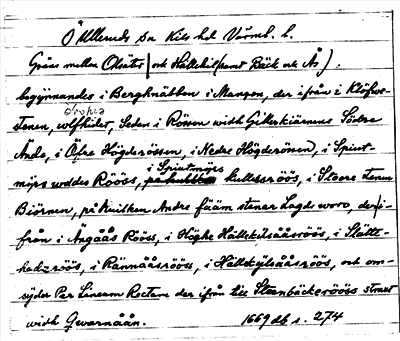 Ö Ullerud sn Kils hd Värml. l.
Gräns mellan Olsäter och Hällekil (samt Bäck och Ås).
begÿnnandes i Bergknäbben i Mangen, der ifrån i Klöfwe-
Stenen, wtskides, Seden i Rösen widh Gillerkiärnens Södre
Ände, i Öfre Högderössen, i Nedre Högderösen, i Sprint-
i Sprintmÿrs
mÿrs uddes Rööös, kullesröös, i Stoere Stenen
Biörnen, på huilken Andre fiääm stenar Lagde woro, der i-
från i Ängåås Rööss, i Höghe Hällekÿlsååsröös, i Slätte-
hedz röös, i Rännååsrööss, i Hällekÿlsååsrööss, och om-
sÿder Per Lineam Rectam der ifrån till Steenbäckerööss straxt
widh Qwarnåån. 1669 db s. 274